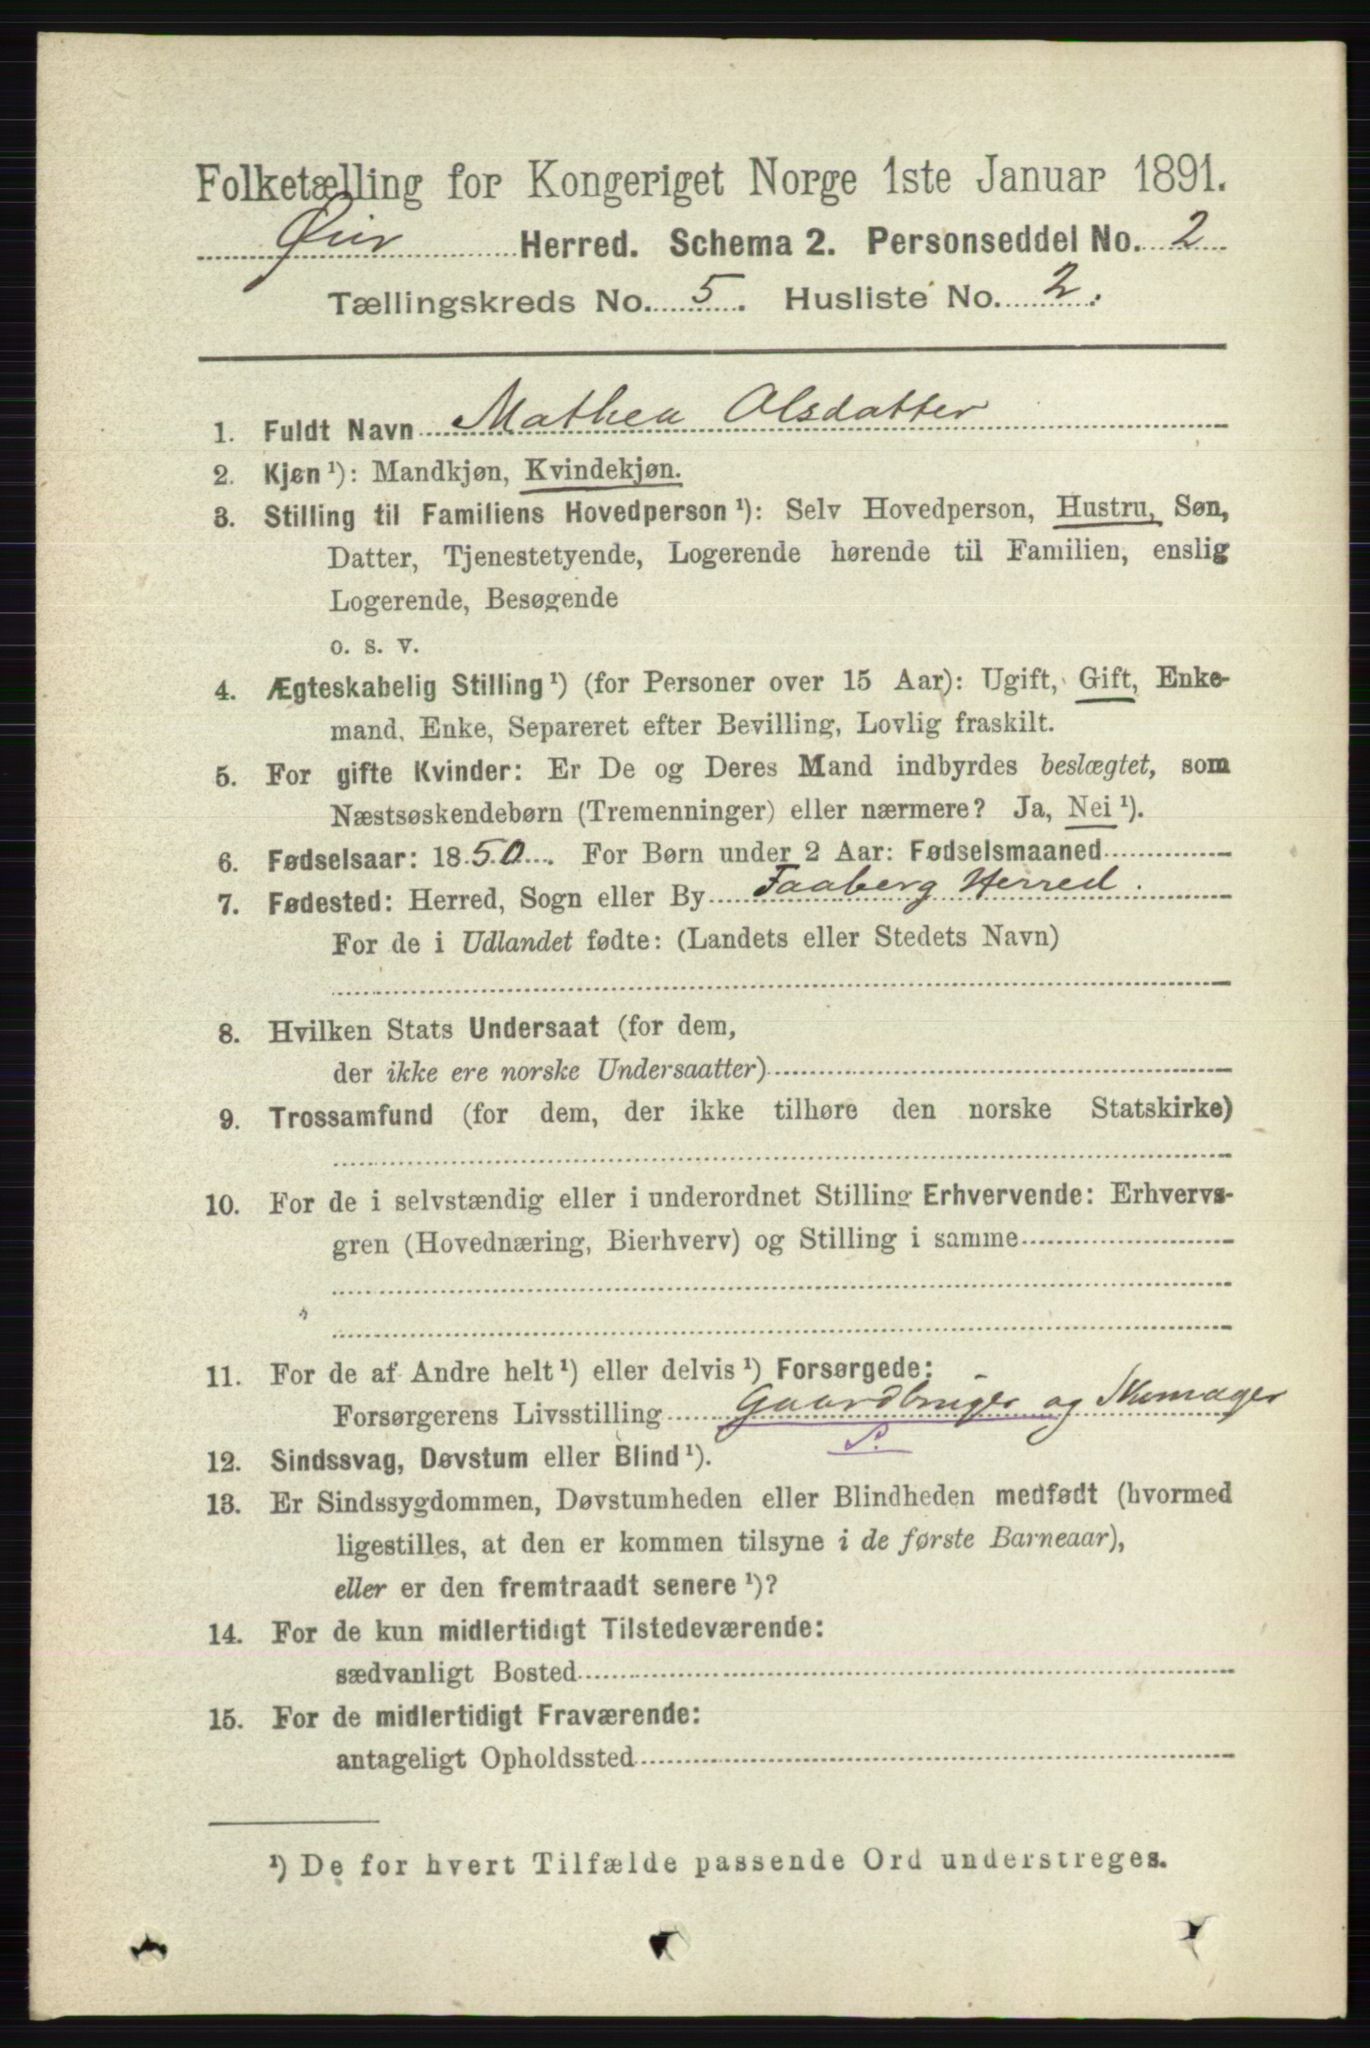 Folketælling for Kongeriget Norge 1ste Januar 1891.
Øier Herred. Schema 2. Personseddel No. 2
Tællingskreds No. 5. Husliste No. 2.
1. Fuldt Navn Mathea Olsdatter
2. Kjøn ¹): Mandkjøn, Kvindekjøn.
3. Stilling til Familiens Hovedperson ¹): Selv Hovedperson, Hustru, Søn,
Datter, Tjenestetyende, Logerende hørende til Familien, enslig
Logerende, Besøgende
o. s. v.
4. Ægteskabelig Stilling ¹) (for Personer over 15 Aar): Ugift, Gift, Enke-
mand, Enke, Separeret efter Bevilling, Lovlig fraskilt.
5. For gifte Kvinder: Er De og Deres Mand indbyrdes beslægtet, som
Næstsøskendebørn (Tremenninger) eller nærmere? Ja, Nei ¹).
6. Fødselsaar: 1850. For Børn under 2 Aar: Fødselsmaaned
7. Fødested: Herred, Sogn eller By Faaberg Herred.
For de i Udlandet fødte: (Landets eller Stedets Navn)
8. Hvilken Stats Undersaat (for dem,
der ikke ere norske Undersaatter)
9. Trossamfund (for dem, der ikke tilhøre den norske Statskirke)
10. For de i selvstændig eller i underordnet Stilling Erhvervende: Erhvervs-
gren (Hovednæring, Bierhverv) og Stilling i samme
11. For de af Andre helt ¹) eller delvis ¹) Forsørgede:
Forsørgerens Livsstilling Gaardbruger og Skomager
S.
12. Sindssvag, Døvstum eller Blind ¹).
13. Er Sindssygdommen, Døvstumheden eller Blindheden medfødt (hvormed
ligestilles, at den er kommen tilsyne i de første Barneaar),
eller er den fremtraadt senere ¹)?
14. For de kun midlertidigt Tilstedeværende:
sædvanligt Bosted
15. For de midlertidigt Fraværende:
antageligt Opholdssted
¹) De for hvert Tilfælde passende Ord understreges.